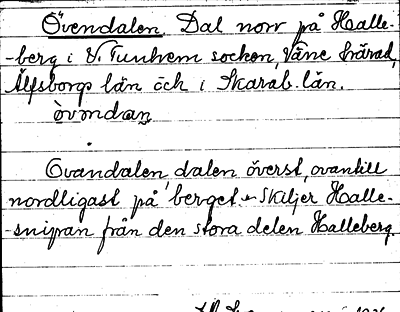 Övendalen. Dal norr på Halle-
-berg i V. Tunhem socken, Väne härad,
Älfsborgs län och i Skarab. län.
òvəndan
Ovandalen, dalen överst, ovantill
nordligast på berget. Skiljer Halle-
-snipan från den stora delen Halleberg.